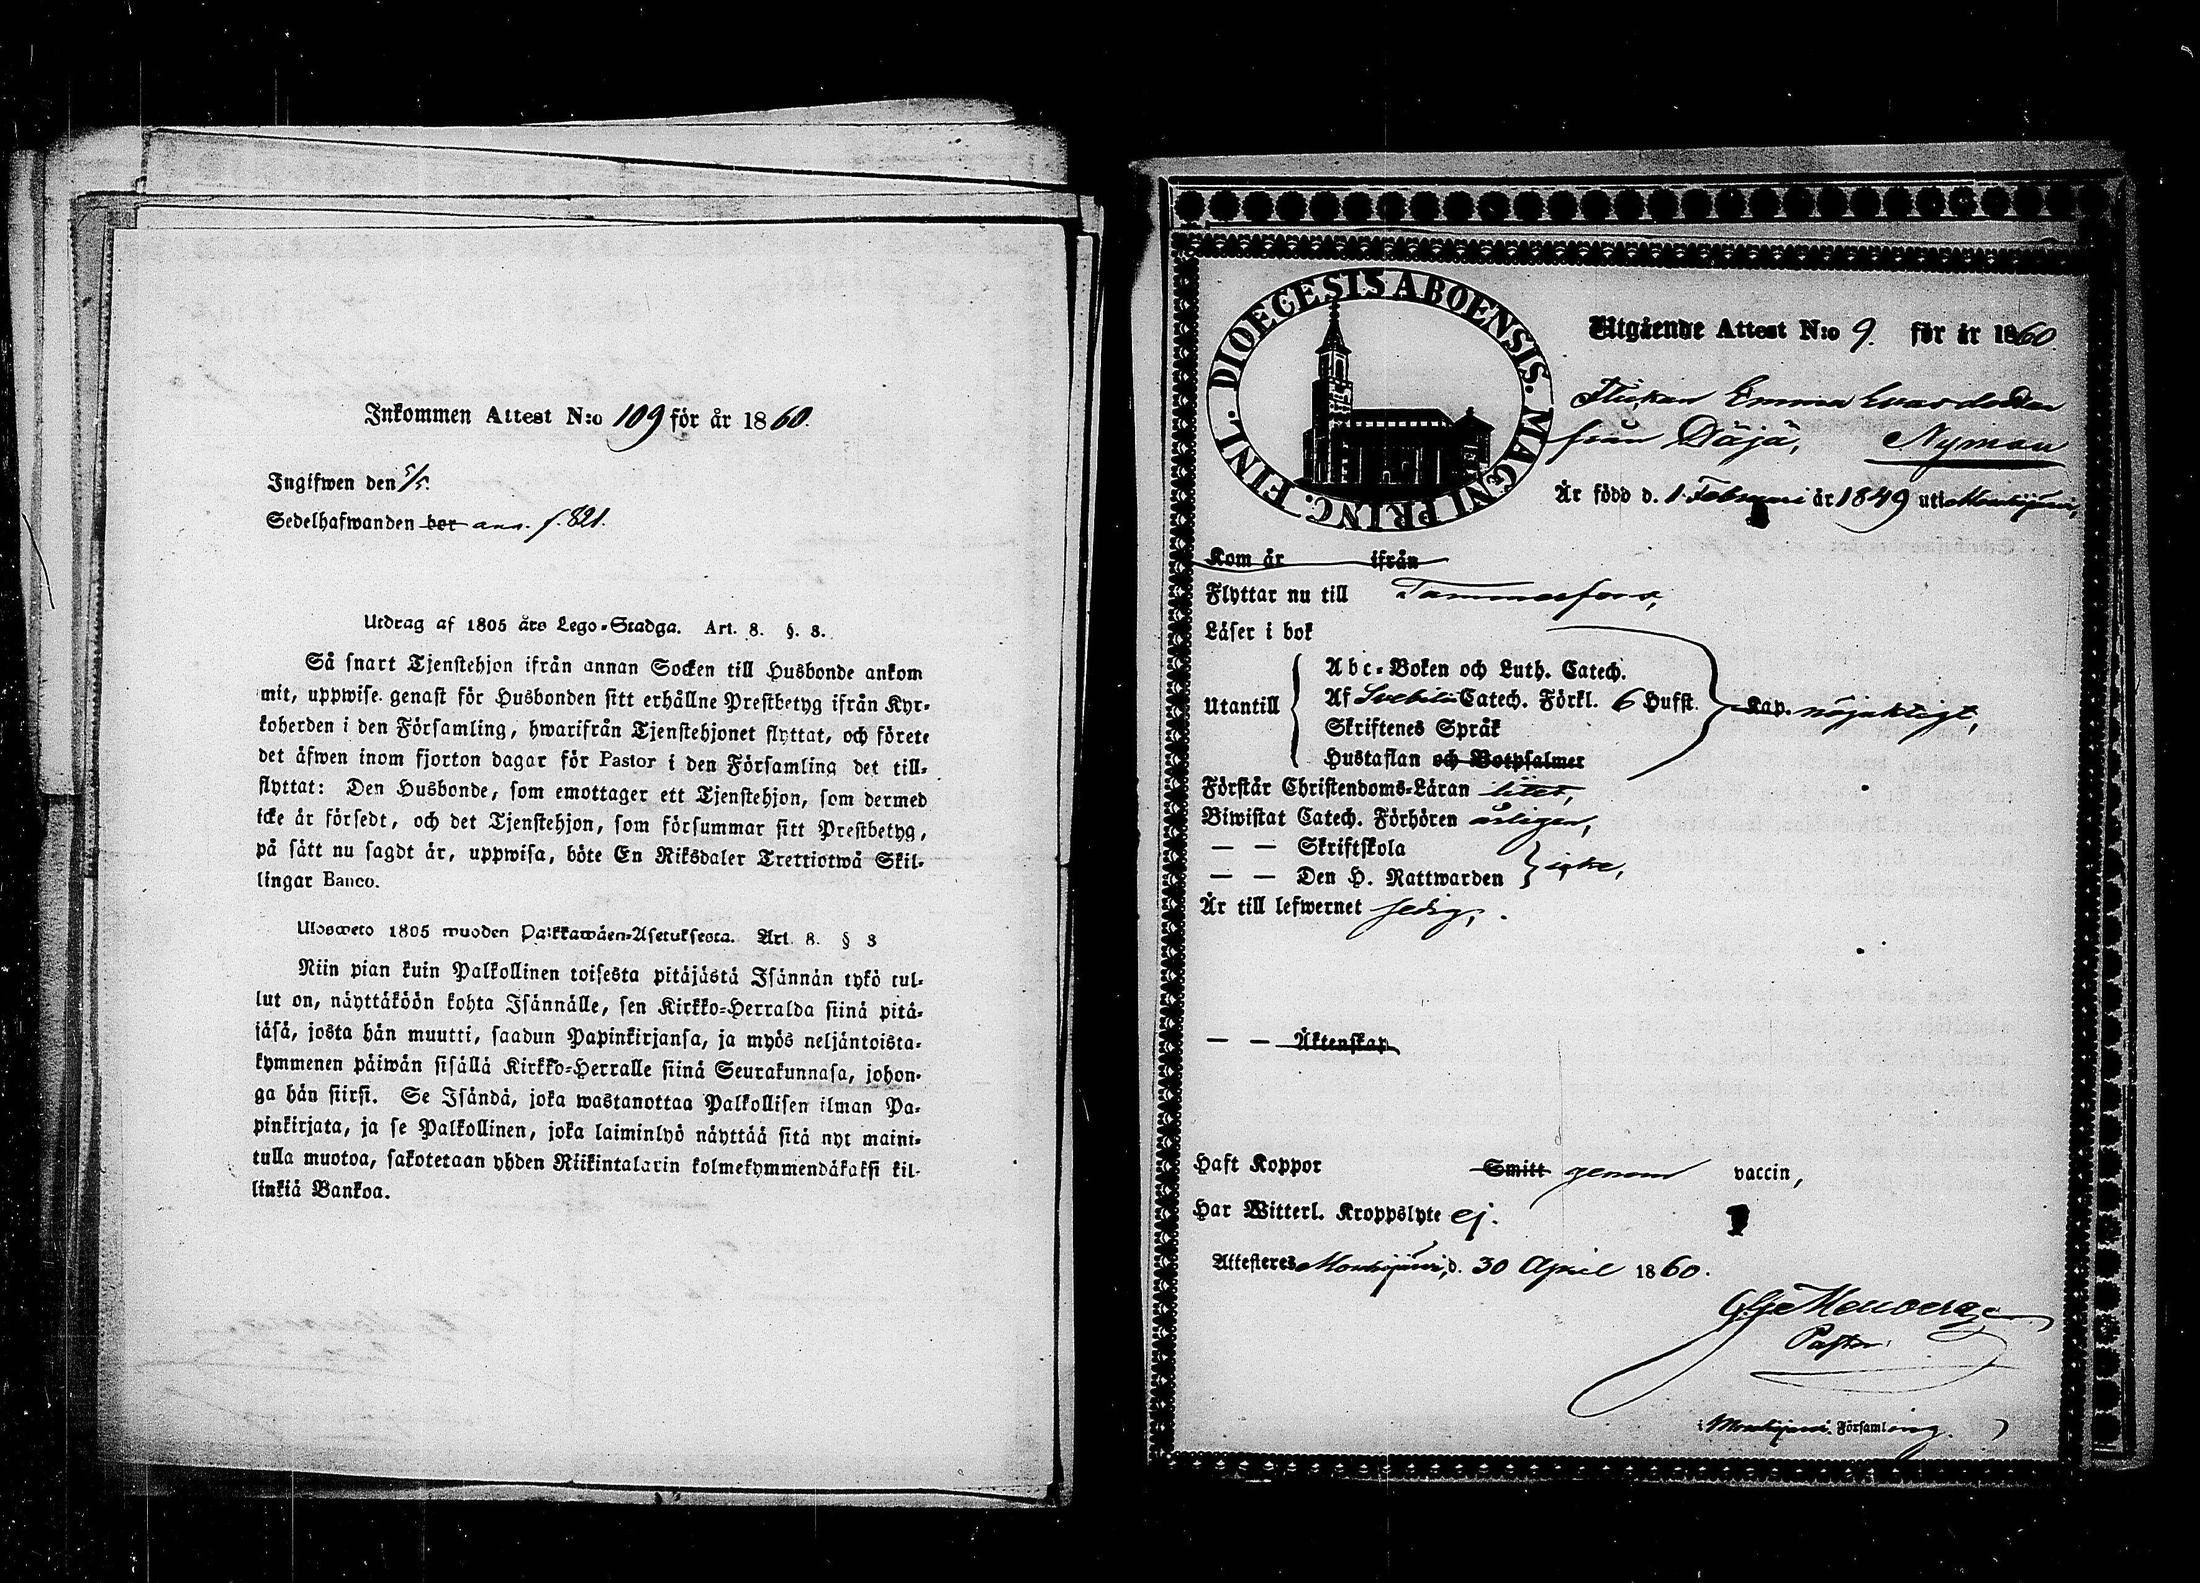 Inkommen Attest N:o 109 för år 1860.
Ingifwen den 5/5.
Sedelhafwanden bor ann. f. 821.
Utdrag af 1805 års Lego-Stadga. Art. 8. §. 8.
Så snart Tjenstehjon ifrån annan Socken till Husbonde ankom
mit, uppwise genast för Husbonden sitt erhållne Prestbetyg ifrån Kyr-
koherden i den Församling, hwarifrån Tjenstehjonet flyttat, och förete
det äfwen inom fjorton dagar för Pastor i den Församling det till-
flyttat: Den Husbonde, som emottager ett Tjenstehjon, som dermed
icke är försedt, och det Tjenstehjon, som försummar sitt Prestbetyg,
på sätt nu sagdt är, uppwisa, böte En Riksdaler Trettiotwå Skil-
lingar Banco.
Ulosweto 1805 wuoden Palkkawäen-Asetuksesta. Art. 8. § 8
Niin pian kuin Palkollinen toisesta pitäjästä Isännän tykö tul-
lut on, näyttäköön kohta Isännälle, sen Kirkko-Herralda siinä pitä-
jäsä, josta hän muutti, saadun Papinkirjansa, ja myös neljäntoista-
kymmenen päiwän sisällä Kirkko-Herralle siinä Seurakunnasa, johon-
ga hän siirsi. Se Isändä, joka wastanottaa Palkollisen ilman Pa-
pinkirjata, ja se Palkollinen, joka laiminlyö näyttää sitä nyt maini-
tulla muotoa, sakotetaan yhden Riikintalarin kolmekymmendäkaksi kil-
linkiä Bankoa.
DIOECESIS ABOENSIS. MAGNI PRINC. FINL.
Utgående Attest N:o 9. för år 1860.
Flickan Emma Evasdotter
från Däjä, Nyman
Är född d. 1 Februari år 1849 uti Mouhijärvi,
Kom år ifrån
Flyttar nu till Tammerfors,
Läser i bok
Abc-Boken och Luth. Catech.
Utantill Af Svebilii Catech. Förkl. 6 Hufst. Kap. nöjaktigt,
Skriftenes Språk
Hustaflan och Botpsalmer
Förstår Christendoms-Läran litet,
Biwistat Catech. Förhören årligen,
— — Skriftskola
— — Den H. Nattwarden icke,
Är till lefwernet sedig,
— — Äktenskap
Haft Koppor Smitt genom vaccin,
Har Witterl. Kroppslyte ej.
Attesteres Mouhijärvi, d. 30 April 1860.
Pastor
i Mouhijärvi Församling.